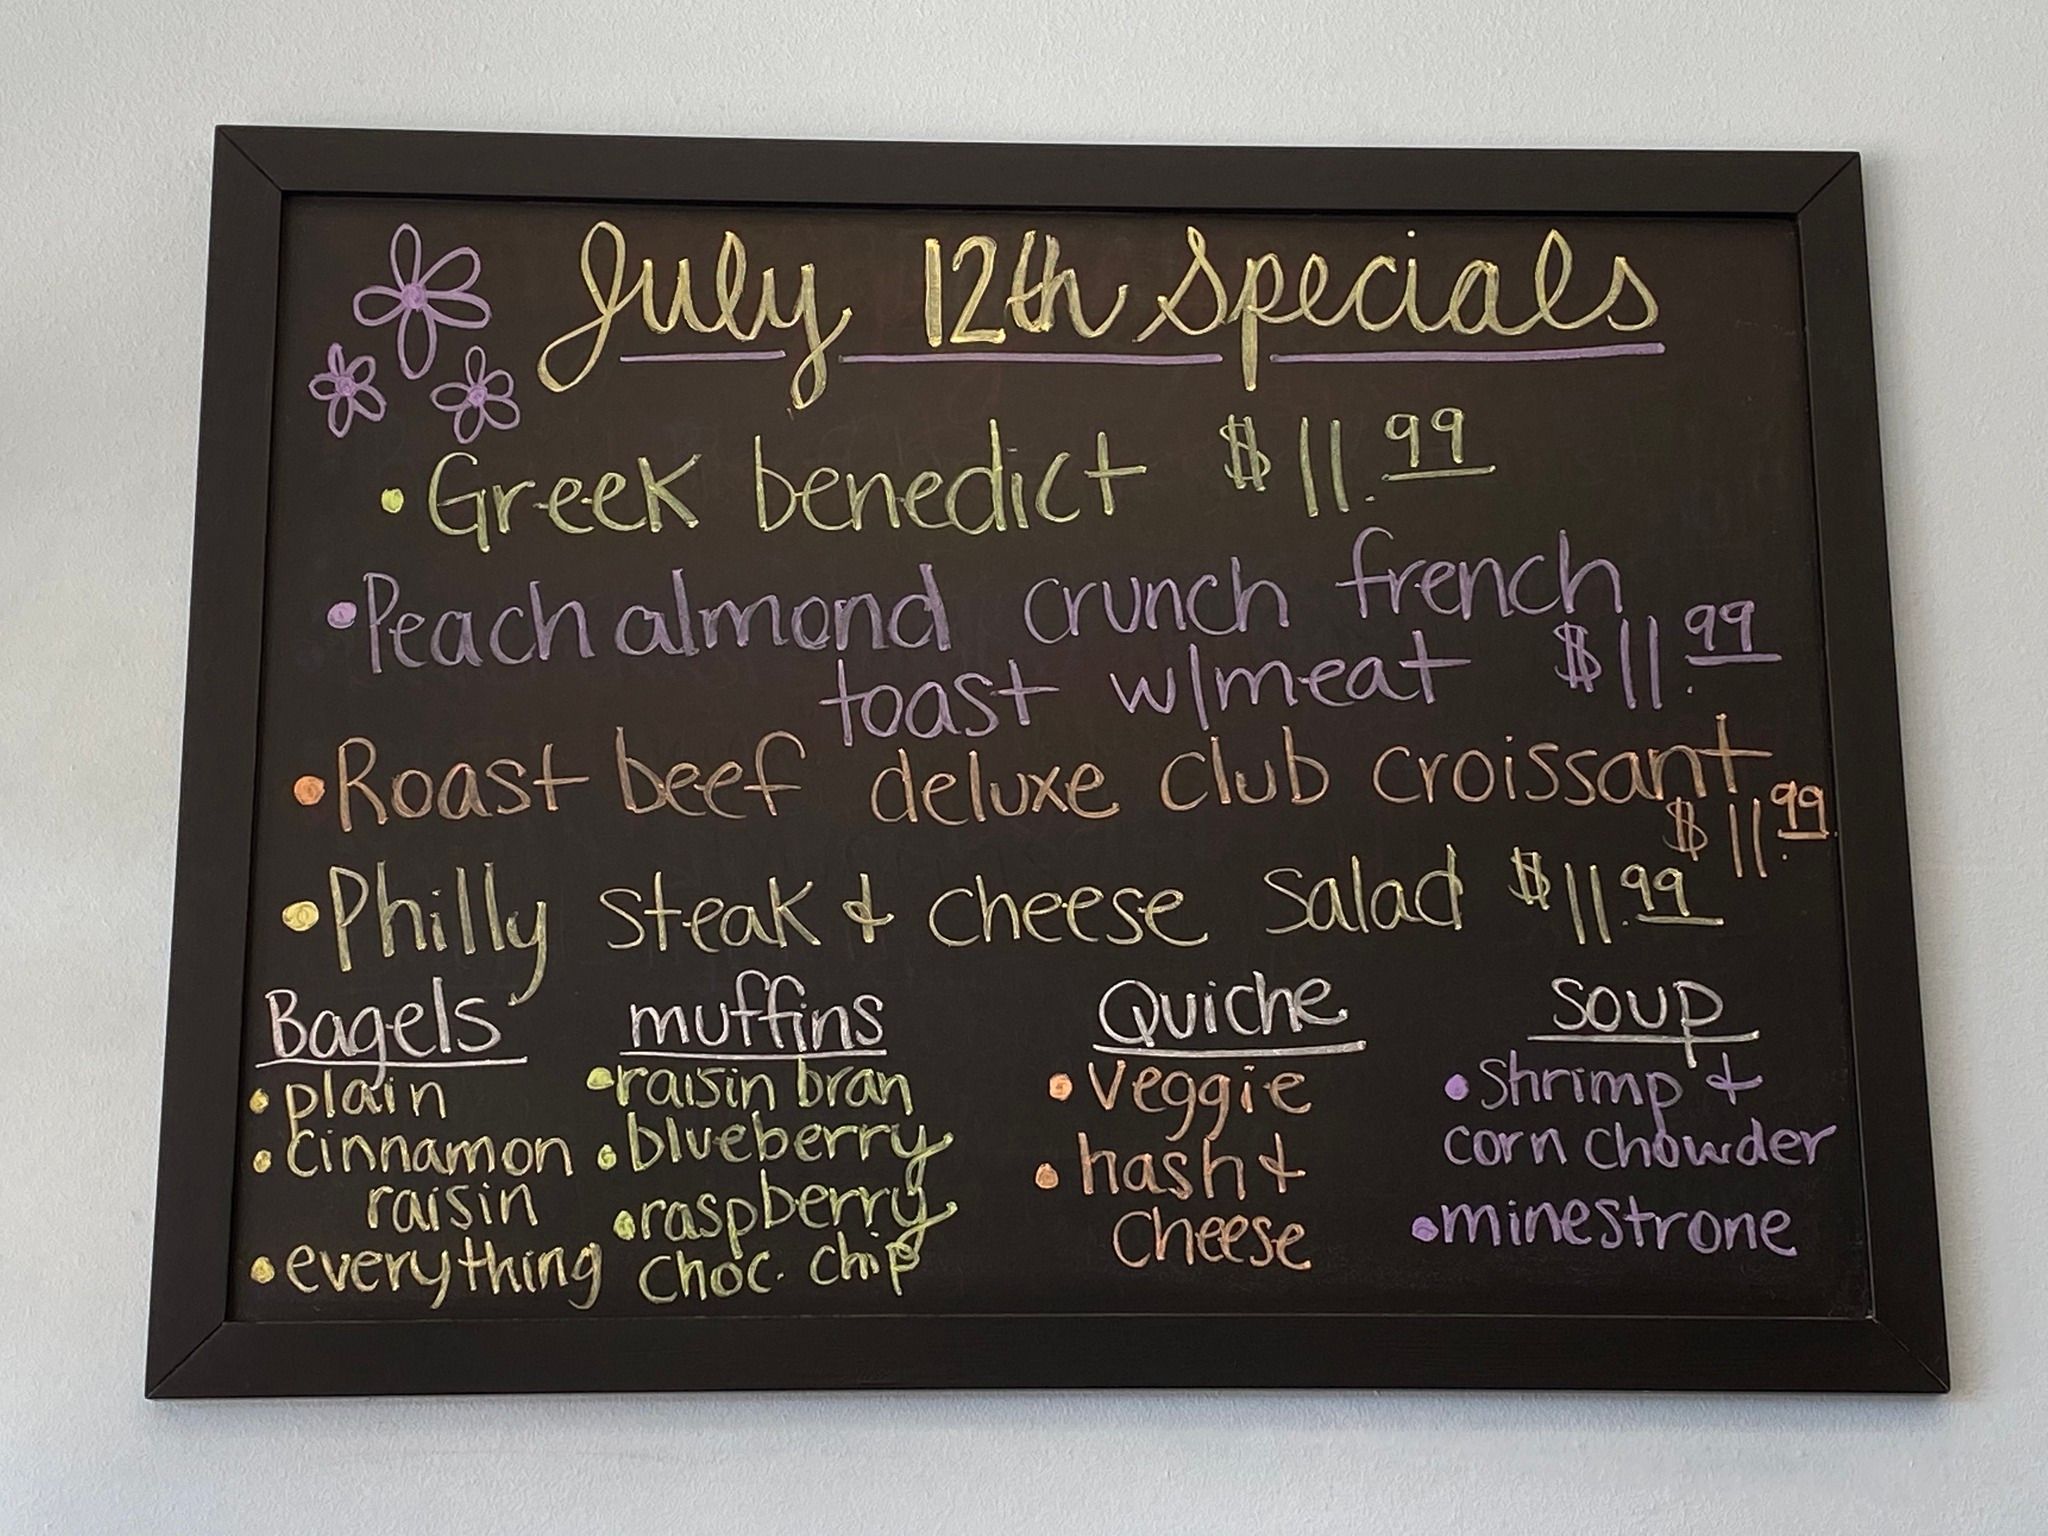 July 12th Specials
• Greek benedict $11.99
• Peach almond crunch french
toast w/meat $11.99
• Roast beef deluxe club croissant
$11.99
• Philly steak & cheese salad $11.99
Bagels
• plain
• cinnamon
raisin
• everything
muffins
• raisin bran
• blueberry
• raspberry
choc. chip
Quiche
• veggie
• hash &
cheese
soup
• shrimp &
corn chowder
• minestrone